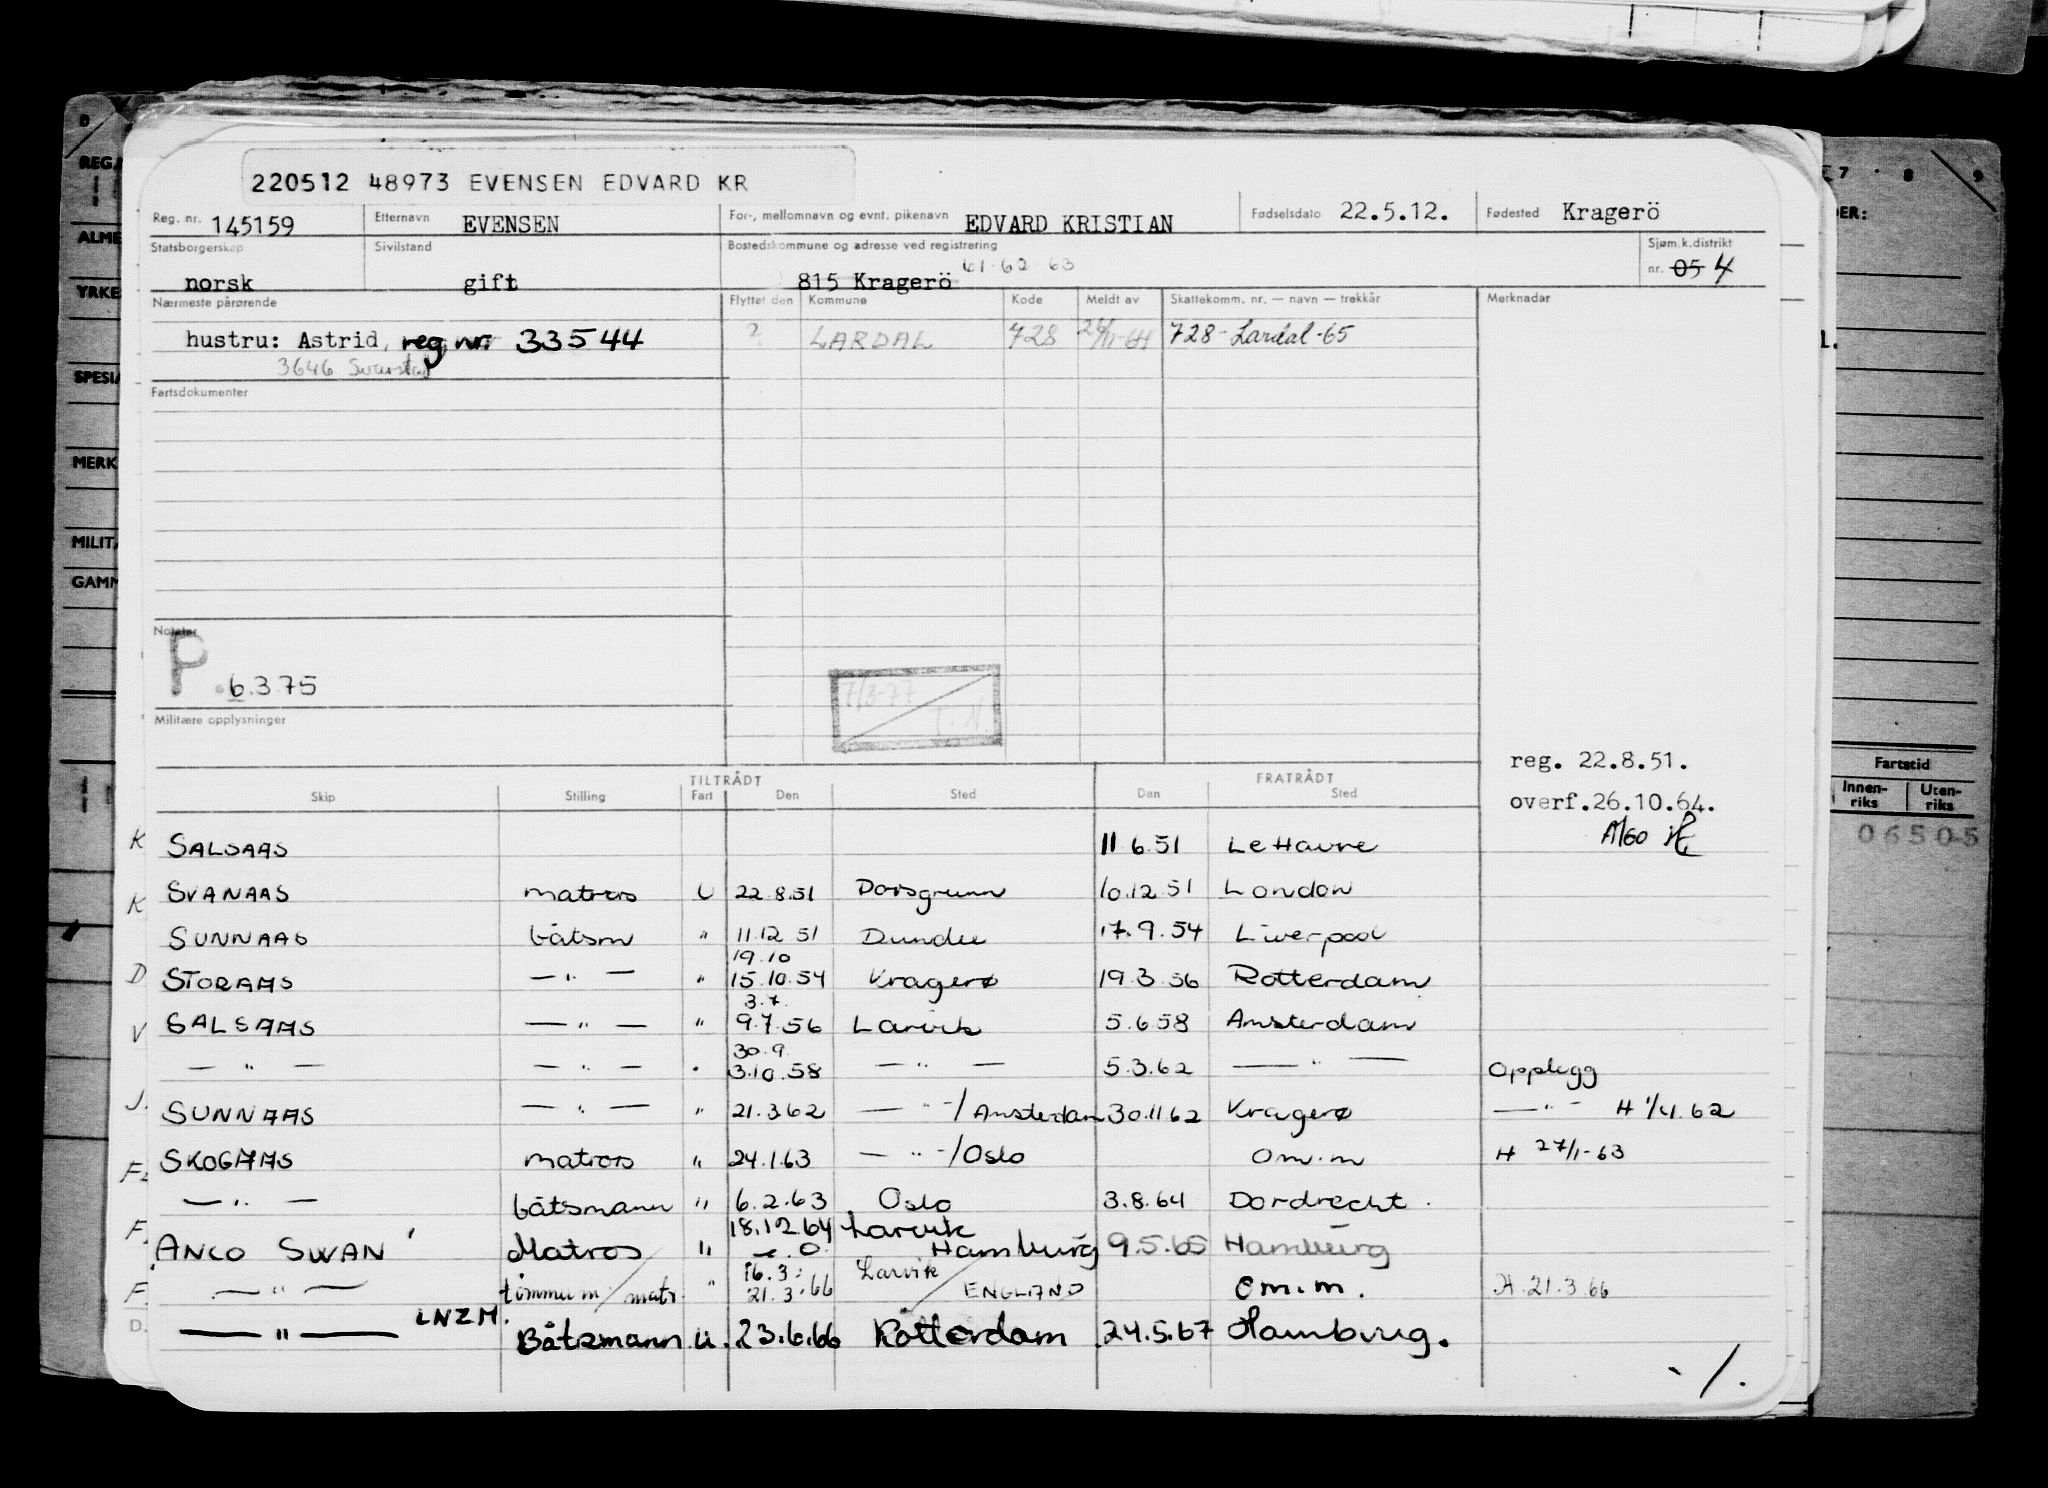 220512 48973 EVENSEN EDVARD KR
Reg. nr. 145159 Etternavn EVENSEN For-, mellomnavn og evnt. pikenavn EDVARD KRISTIAN Fødselsdato 22.5.12. Fødested Kragerö
Statsborgerskap norsk Sivilstand gift Bostedskommune og adresse ved registrering 815 Kragerö 61-62-63 Sjøm.k.distrikt nr. 05 4
Nærmeste pårørende Flyttet den Kommune Kode Meldt av Skattekomm. nr. — navn — trekkår Merknader
hustru: Astrid, reg nr: 33544 ? LARDAL 728 728- Lardal -65
3646
Fartsdokumenter
Notater
P 6.375
7/3-77 T.N.
Militære opplysninger
reg. 22.8.51.
overf.26.10.64.
TILTRÅDT FRATRÅDT
Skip Stilling Fart Den Sted Den Sted
K SALSAAS 11 6.51 Le Havre
K SVANAAS matros U 22.8.51 Porsgrunn 10.12.51 London
SUNNAAS båtsm " 11.12 51 Dundee 17.9.54 Liverpool
19.10
D STORAAS — " — " 15.10.54 Kragerø 19.3.56 Rotterdam
3.7.
V SALSAAS — " — " 9.7.56 Larvik 5.6.58 Amsterdam
30.9.
— " — — " — " 3.10.58 — " — 5.3.62 — " — Opplegg
J. SUNNAAS — " — " 21.3.62 — " -/Amsterdam 30.11 62 Kragerø — " — H 1/4.62
F. SKOGAAS matros " 24.1.63 — " -/Oslo Om.m H 27/1-63
— " — båtsmann " 6.2.63 Oslo 3.8.64 Dordrecht.
18.12 64 Larvik
F. ANCO SWAN Matros " Hamburg 9.5.65 Hamburg
16.3. Larvik
F. — " — tömmerm/matr. " 21.3.66 ENGLAND Om.m. H. 21.3.66
LNZM.
D. — " — Båtsmann u. 23.6.66 Rotterdam 24.5.67 Hamburg.
-/.
REG.
ALME
YRKE
SPESIA
MERK
MILITÆ
GAMM
7 8 9
DER:
Fartstid
Innen-riks Uten-riks
06505